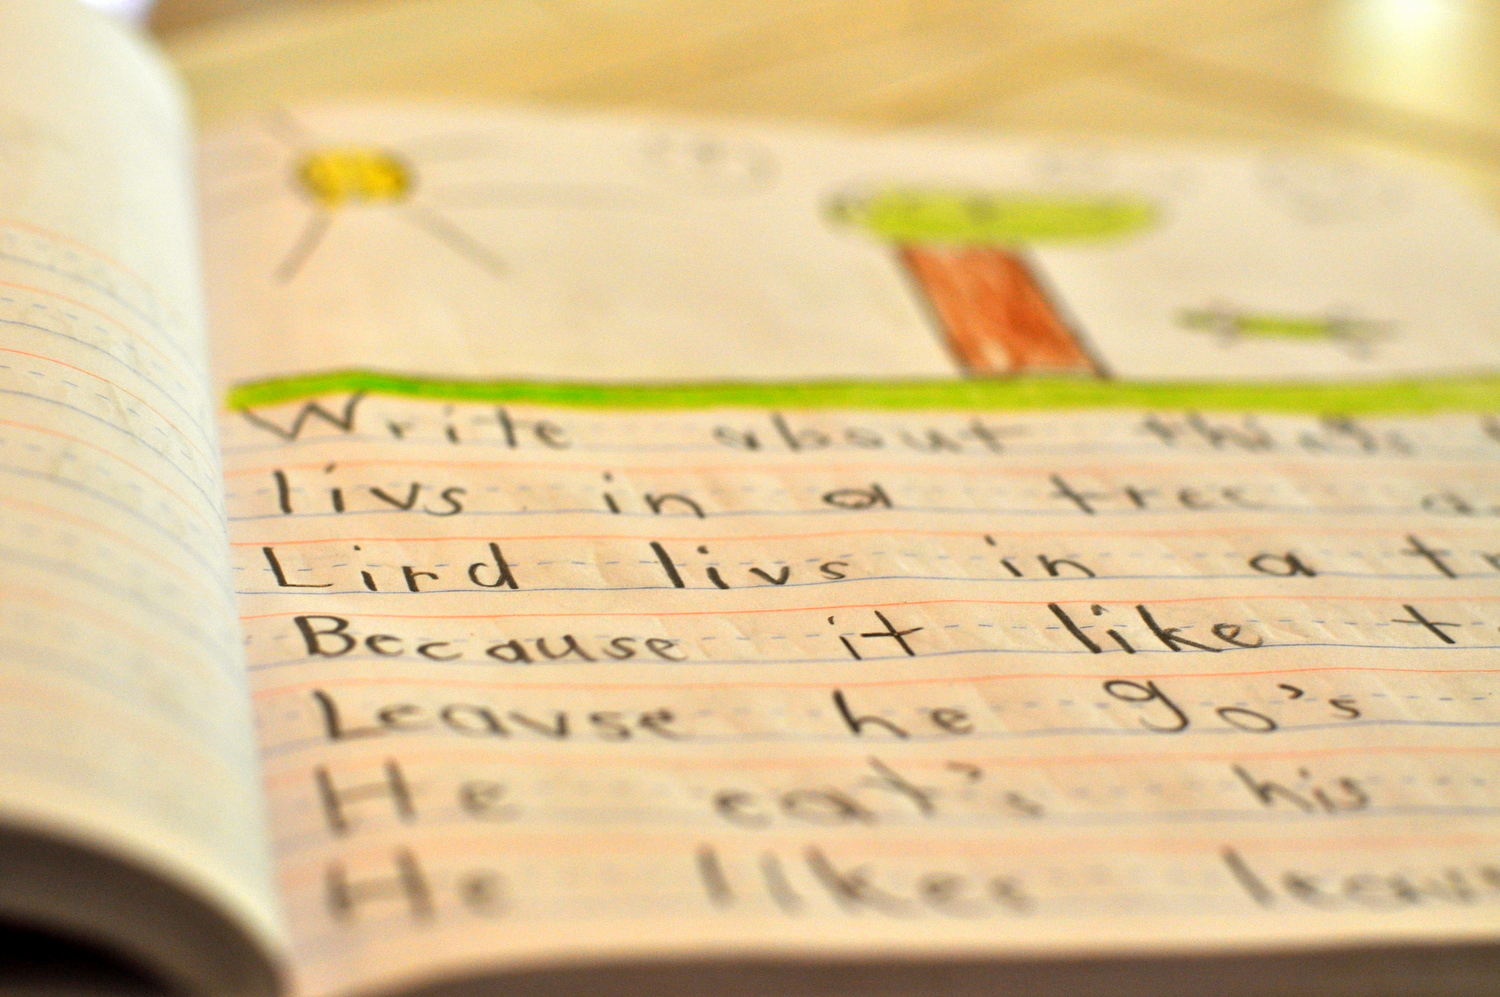 Write about things
livs in a tree
Lird livs in a
Because it like
Leavse he go's
He eat's his
He likes